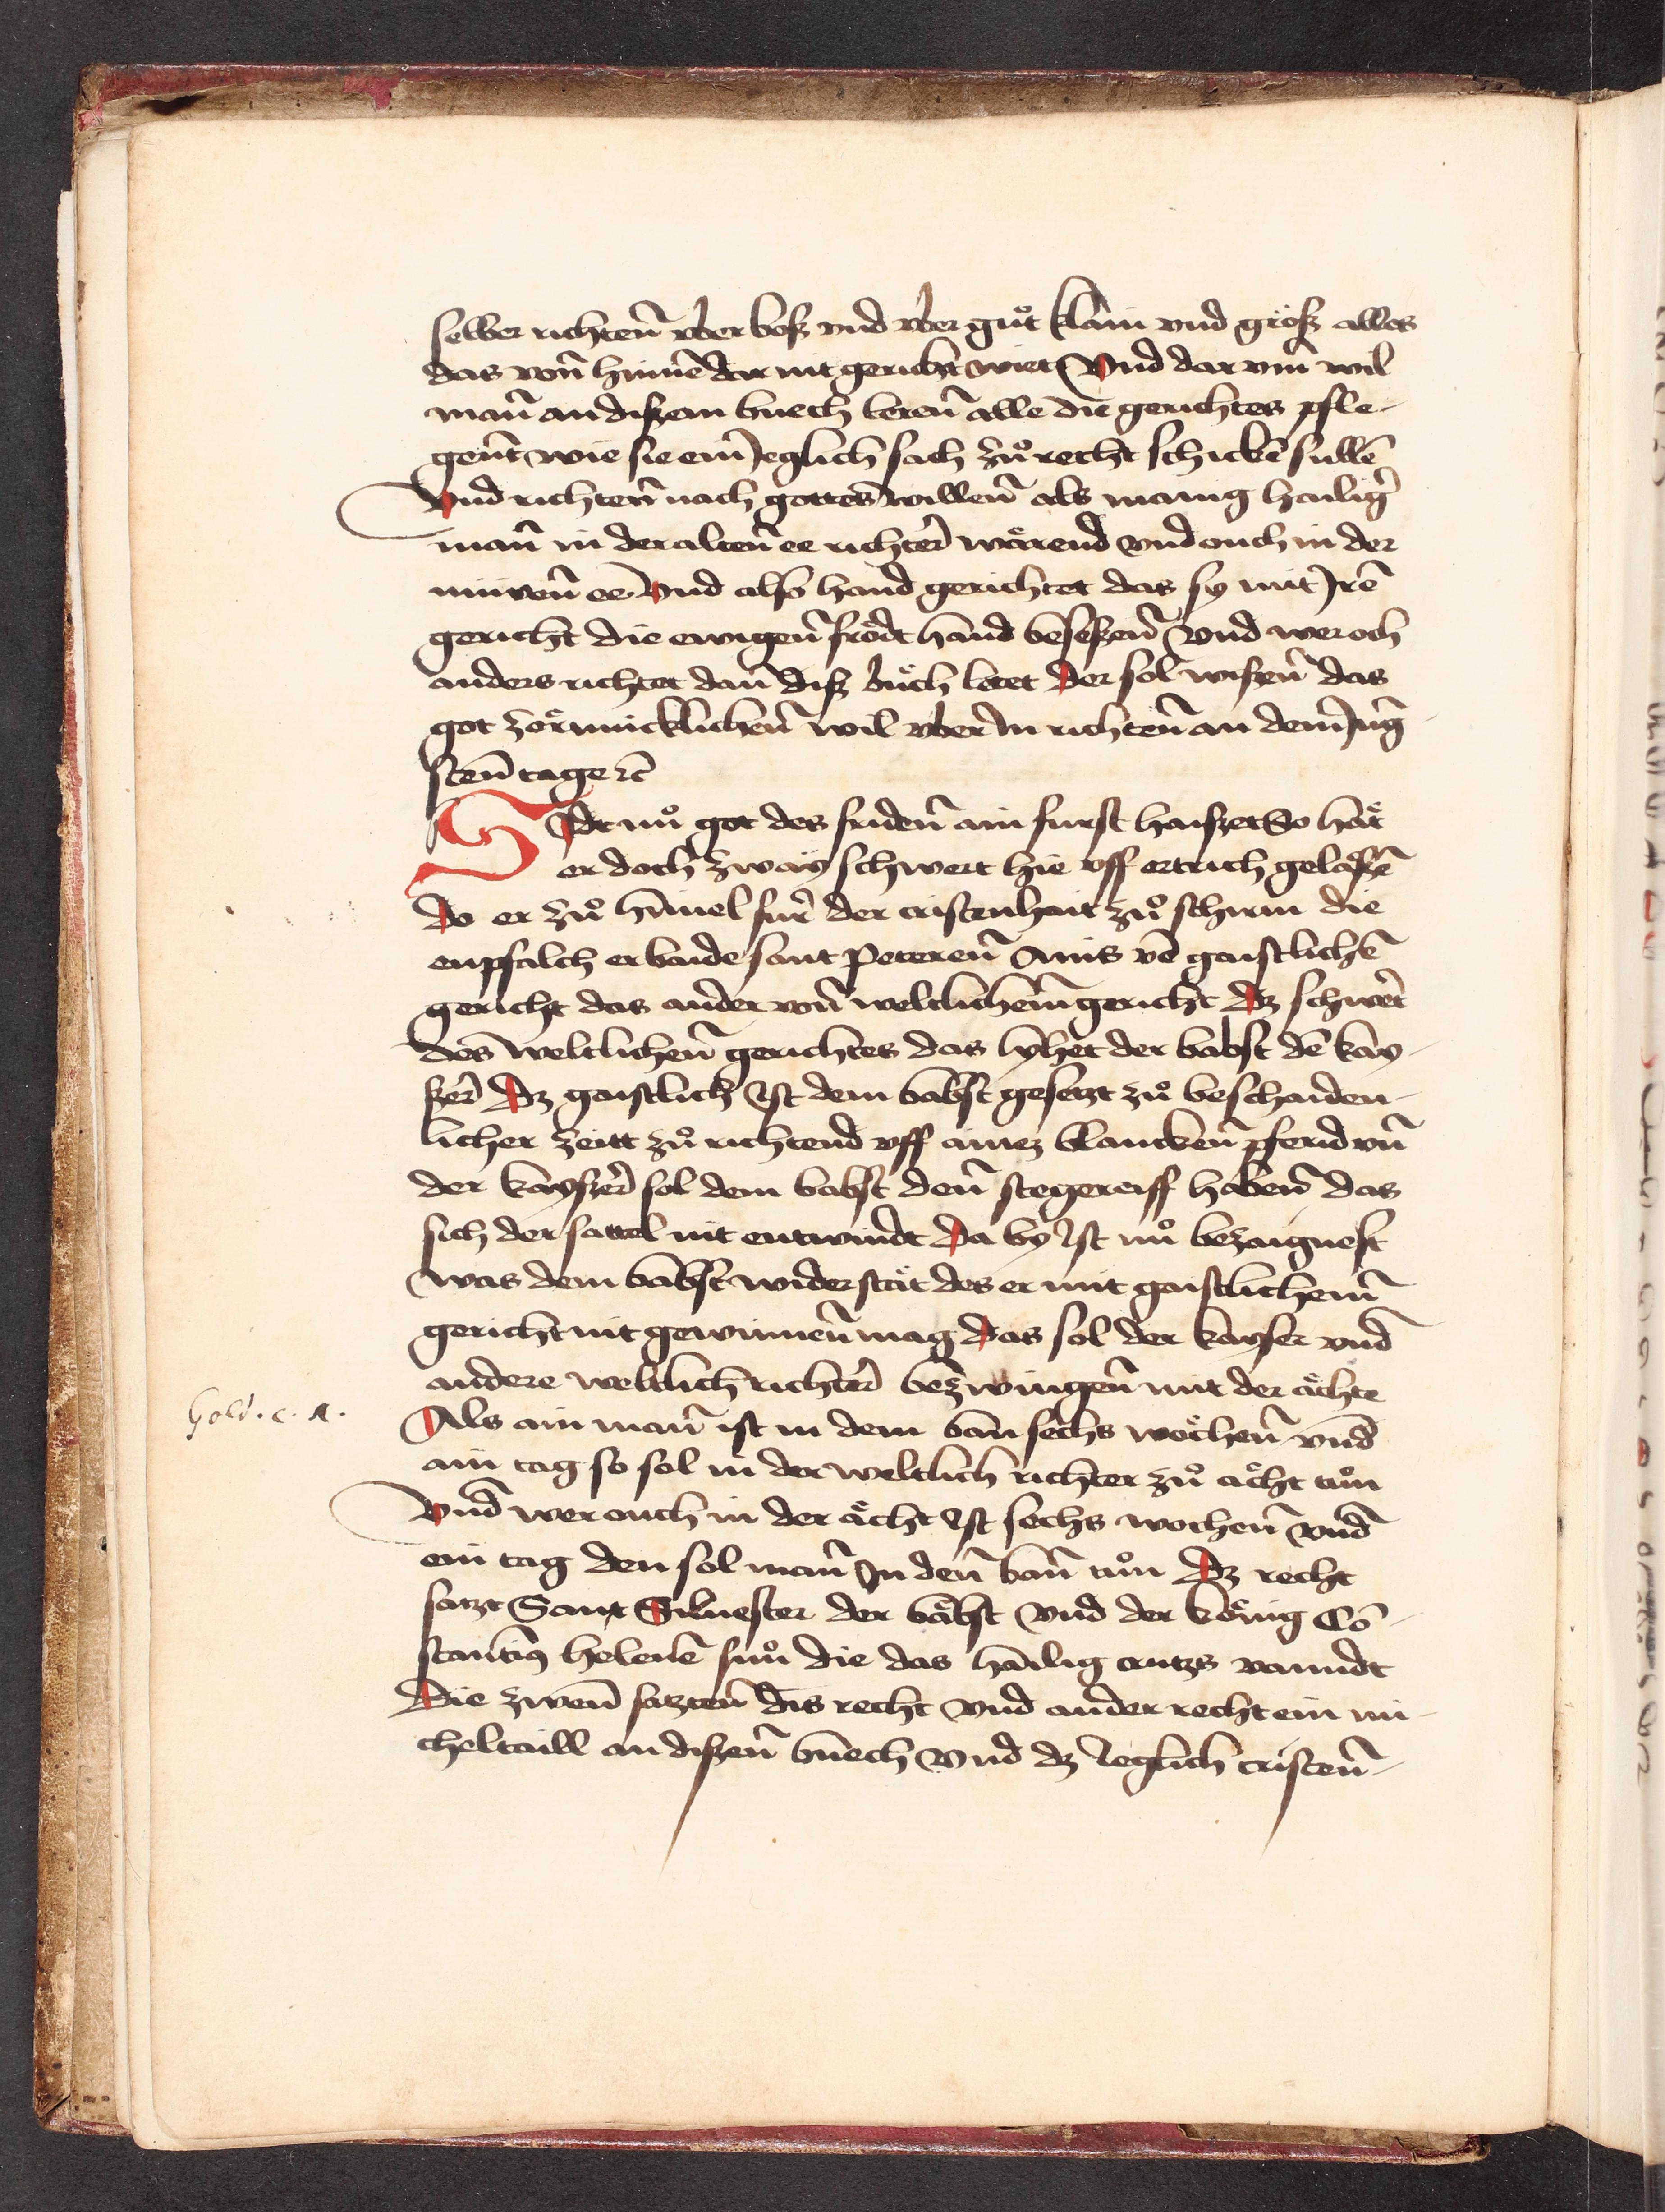 selber richten̄ vber boß vnd vber guͦt klain vnd groͤß alles
das von̄ hinnē dar nit gericht wirt Vnd dar vm̄ wil
man̄ an diszem buech leren̄ alle die gerichtes pfle-
gent̄ wie sie ein Jeglich sach zuͦ recht schicken̄ sullē
Vnd richten̄ nach gottes willen̄ als manig hailiḡ
man̄ in der alten̄ ee richter̄ waͤrend vnd ouch in der
nüwen̄ ee Vnd also hand gerichtet das sy mit Jrē
gericht die ewigen̄ froͤdt hand beseszen̄ Vnd wer och
anders richtet dan̄ diß buͤch leret Der sol wiszen̄ das
got zoͤrnnicklichen̄ wil vber In richten̄ an dem Junḡ
sten̄ tage ꝛc̄
Sidt nuͦ got des friden̄ ain furst haiszet So haͤt
er doch zway schwert hie vff ertrich gelaͤszē
Do er zuͦ himel fur̄ der cristenhait zuͦ schirm die
enpfalch er baide sant Peteren̄ Ains vō gaistlichē
gericht das ander von̄ weltlichem̄ gericht Dz schwert̄
des weltlichen̄ gerichtes das lyhet der babst dē kay-
szer̄ Dz gaistlich Ist dem babst gesetzt zuͦ beschaiden-
licher zeitt zuͦ richtend vff ainez blancken̄ pferid vn̄
der kayszer̄ sol dem babst den̄ stegereiff haben̄ das
sich der sattel nit entwindt Da by Ist nuͦ bezaignest
was dem babst widerstaͤt des er mit gaistlichem̄
gericht nit gewinnen̄ mag Das sol der kayser vnd
andere weltlich richter̄ bezwingen̄ mit der aͤchte
Als ain man̄ ist in dem ban̄ sechs woͤchen̄ vnd
ain tag so sol in der weltlich richter zuͦ aͤcht tuͦn
Vnd wer ouch in der aͤcht Ist sechs wochen̄ vnd
ein tag den sol man̄ In den̄ ban̄ tuͦn Dz recht
satzt Sant Siluester der baͤbst Vnd der koͤnig Cō-
stantinꝰ helenē suͦn die das hailig crutzs vanndt
Die zwen̄ satzten̄ dis recht Vnd ander recht ein mi-
cheltaill an diszen̄ buech Vnd dz Ieglich cristen̄-
Gold. c. 1.